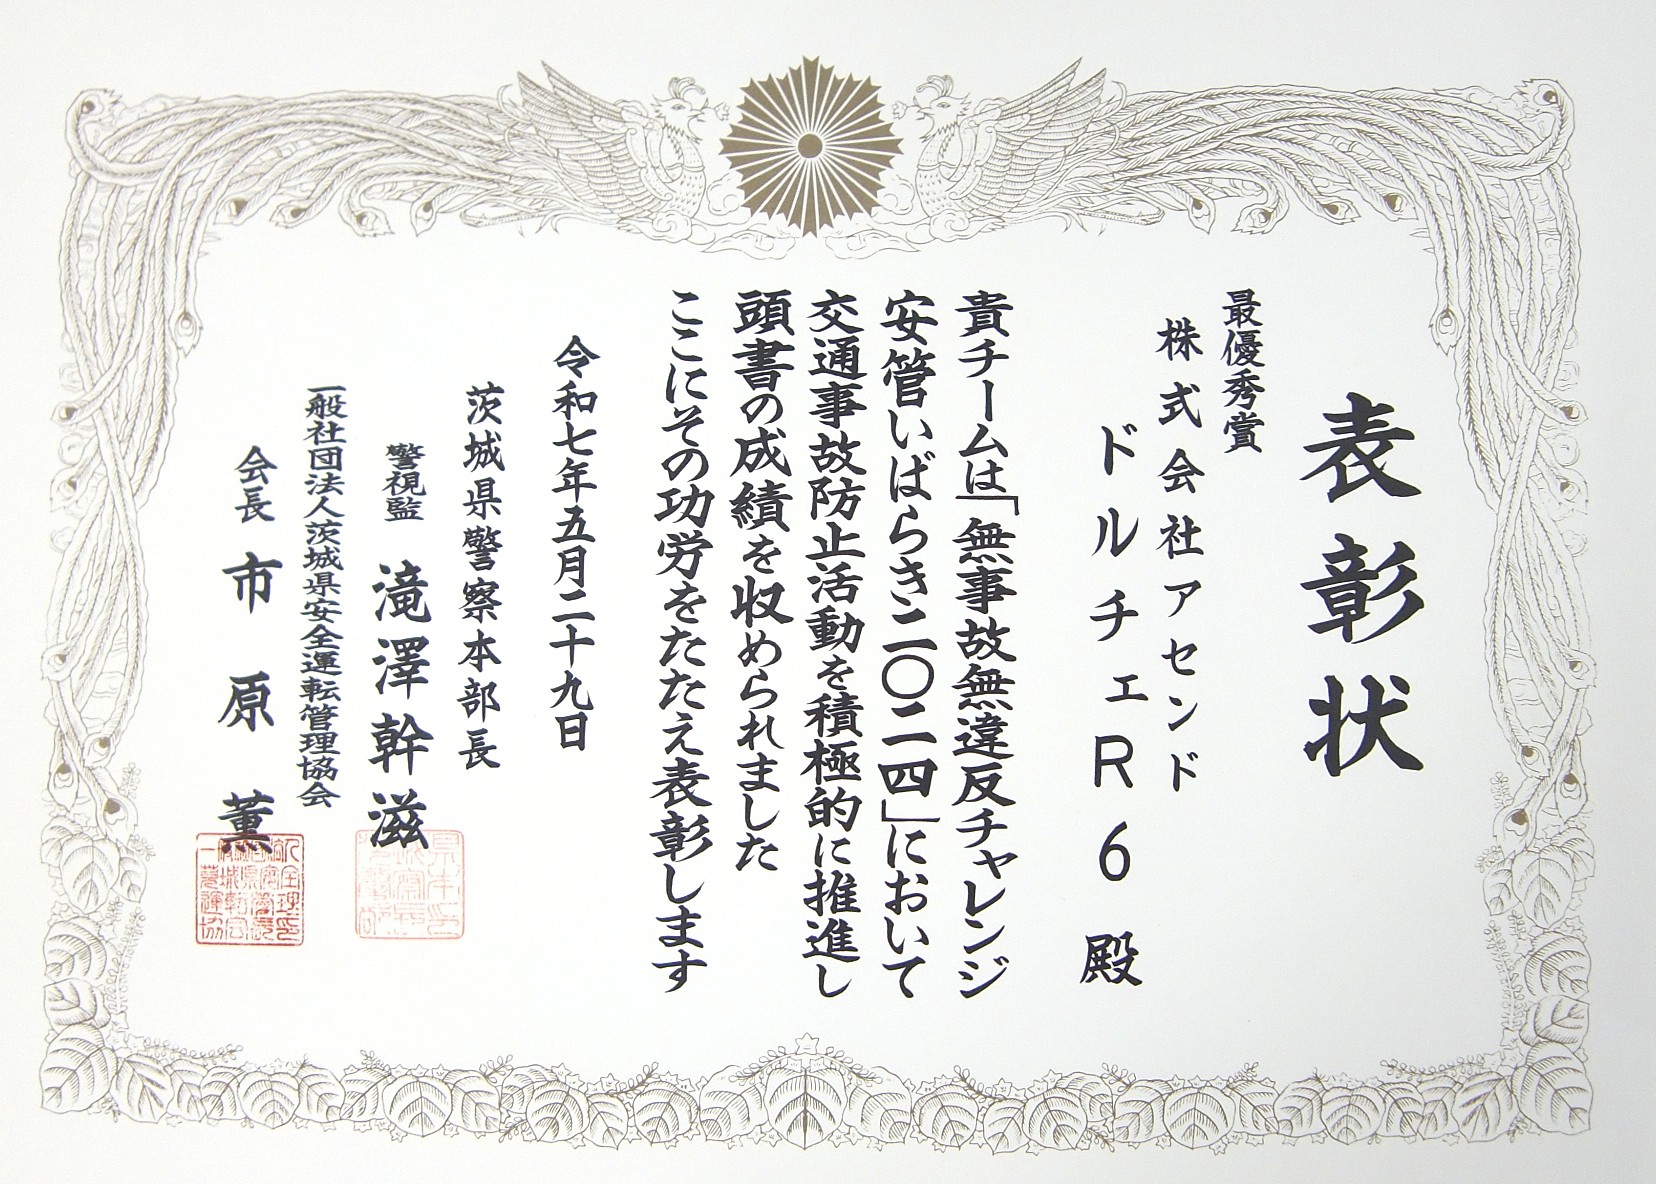 表彰状
最優秀賞
株式会社アセンド
ドルチェR6 殿
貴チームは「無事故無違反チャレンジ
安管いばらき二〇二四」において
交通事故防止活動を積極的に推進し
頭書の成績を収められました
ここにその功労をたたえ表彰します
令和七年五月二十九日
茨城県警察本部長
警視監 滝澤幹滋
一般社団法人茨城県安全運転管理協会
会長 市原薫